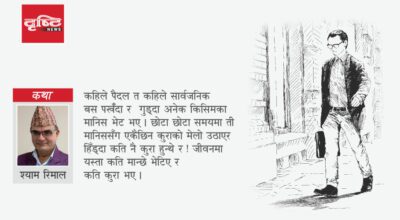 दृष्टि
NEWS
कथा
श्याम रिमाल
कहिले पैदल त कहिले सार्वजनिक
बस पर्खंदा र गुड्दा अनेक किसिमका
मानिस भेट भए । छोटा छोटा समयमा ती
मानिससँग एकैछिन कुराको मेलो उठाएर
हिँड्दा कति नै कुरा हुन्थे र ! जीवनमा
यस्ता कति मान्छे भेटिए र
कति कुरा भए ।